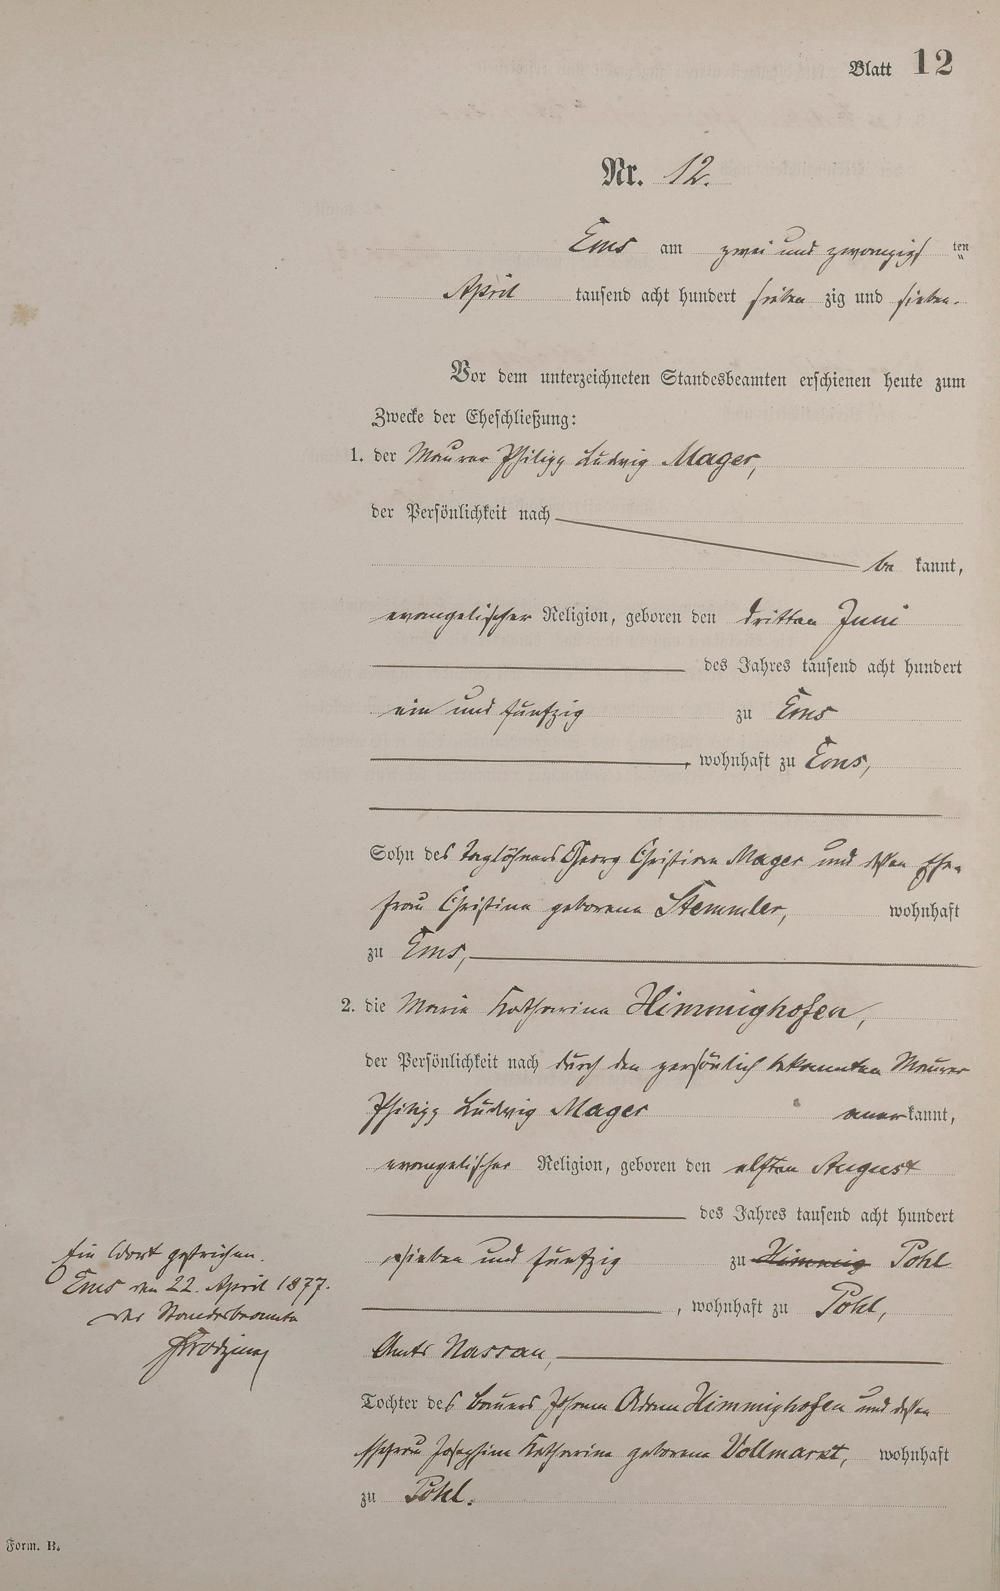 Blatt 12
Nr. 12.
Ems am zwei und zwanzigs ten
April tausend acht hundert sieben zig und sieben.
Vor dem unterzeichneten Standesbeamten erschienen heute zum
Zwecke der Eheschließung:
1. der Maurer Philipp Ludwig Mager,
der Persönlichkeit nach
be kannt,
evangelischer Religion, geboren den dritten Juni
des Jahres tausend acht hundert
ein und fünfzig zu Ems
, wohnhaft zu Ems,
Sohn des Taglöhners Georg Christian Mager und dessen Ehe-
frau Christina geborene Stemmler, wohnhaft
zu Ems,
2. die Maria Katharina Himmighofen,
der Persönlichkeit nach durch den persönlich bekannten Maurer
Philipp Ludwig Mager aner kannt,
evangelischer Religion, geboren den elften August
des Jahres tausend acht hundert
sieben und fünfzig zu Himmig Pohl
, wohnhaft zu Pohl,
Amts Nassau,
Tochter des Bauers Johann Adam Himmighofen und dessen
Ehefrau Josephine Katharina geborene Vollmarkt, wohnhaft
zu Pohl.
Ein Wort gestrichen.
Ems den 22. April 1877.
Der Standesbeamte
Form. B.